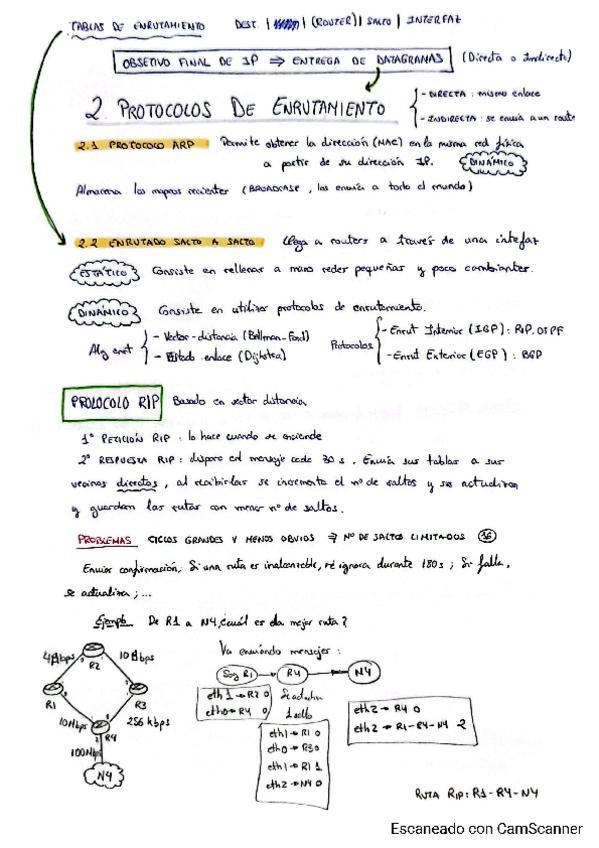 TABLAS DE ENRUTAMIENTO DEST. | (ROUTER) | SALTO | INTERFAZ
OBJETIVO FINAL DE IP ⇒ ENTREGA DE DATAGRAMAS (Directa o Indirecta)
2. PROTOCOLOS DE ENRUTAMIENTO
- DIRECTA: mismo enlace
- INDIRECTA: se envía a un router
2.1 PROTOCOLO ARP: Permite obtener la dirección (MAC) en la misma red física
a partir de su dirección IP. DINÁMICO
Almacena los mapeos recientes (BROADCASE, los envía a todo el mundo)
2.2 ENRUTADO SALTO A SALTO llega a routers a través de una interfaz
ESTÁTICO Consiste en rellenar a mano redes pequeñas y poco cambiantes.
DINÁMICO Consiste en utilizar protocolos de enrutamiento.
Alg enrut
- Vector-distancia (Bellman-Ford)
- Estado enlace (Dijkstra)
Protocolos
- Enrut Interior (IGP): RIP, OSPF
- Enrut Exterior (EGP): BGP
PROLOCOLO RIP Basado en vector distancia
1º PETICIÓN RIP: lo hace cuando se enciende
2º RESPUESTA RIP: dispara el mensaje cada 30s. Envía sus tablas a sus
vecinos directos, al recibirlas se incrementa el nº de saltos y se actualizan
y guardan las rutas con menor nº de saltos.
PROBLEMAS CICLOS GRANDES Y MENOS OBVIOS ⇒ Nº DE SALTOS LIMITADOS 16
Enviar confirmación, Si una ruta es inalcanzable, se ignora durante 180s; Si falla,
se actualiza; ...
Ejemplo De R1 a N4 ¿cuál es la mejor ruta?
Va enviando mensajes:
Soy R1 → R4 → N4
4Mbps
10Mbps
R2
R1
R3
10Mbps
256 kbps
R4
100Mbps
N4
eth1 → R2 0
eth0 → R4 0
1 salto
eth1 → R1 0
eth0 → R3 0
eth1 → R1 1
eth2 → N4 0
eth2 → R4 0
eth2 → R1-R4-N4 2
RUTA RIP: R1-R4-N4
Escaneado con CamScanner